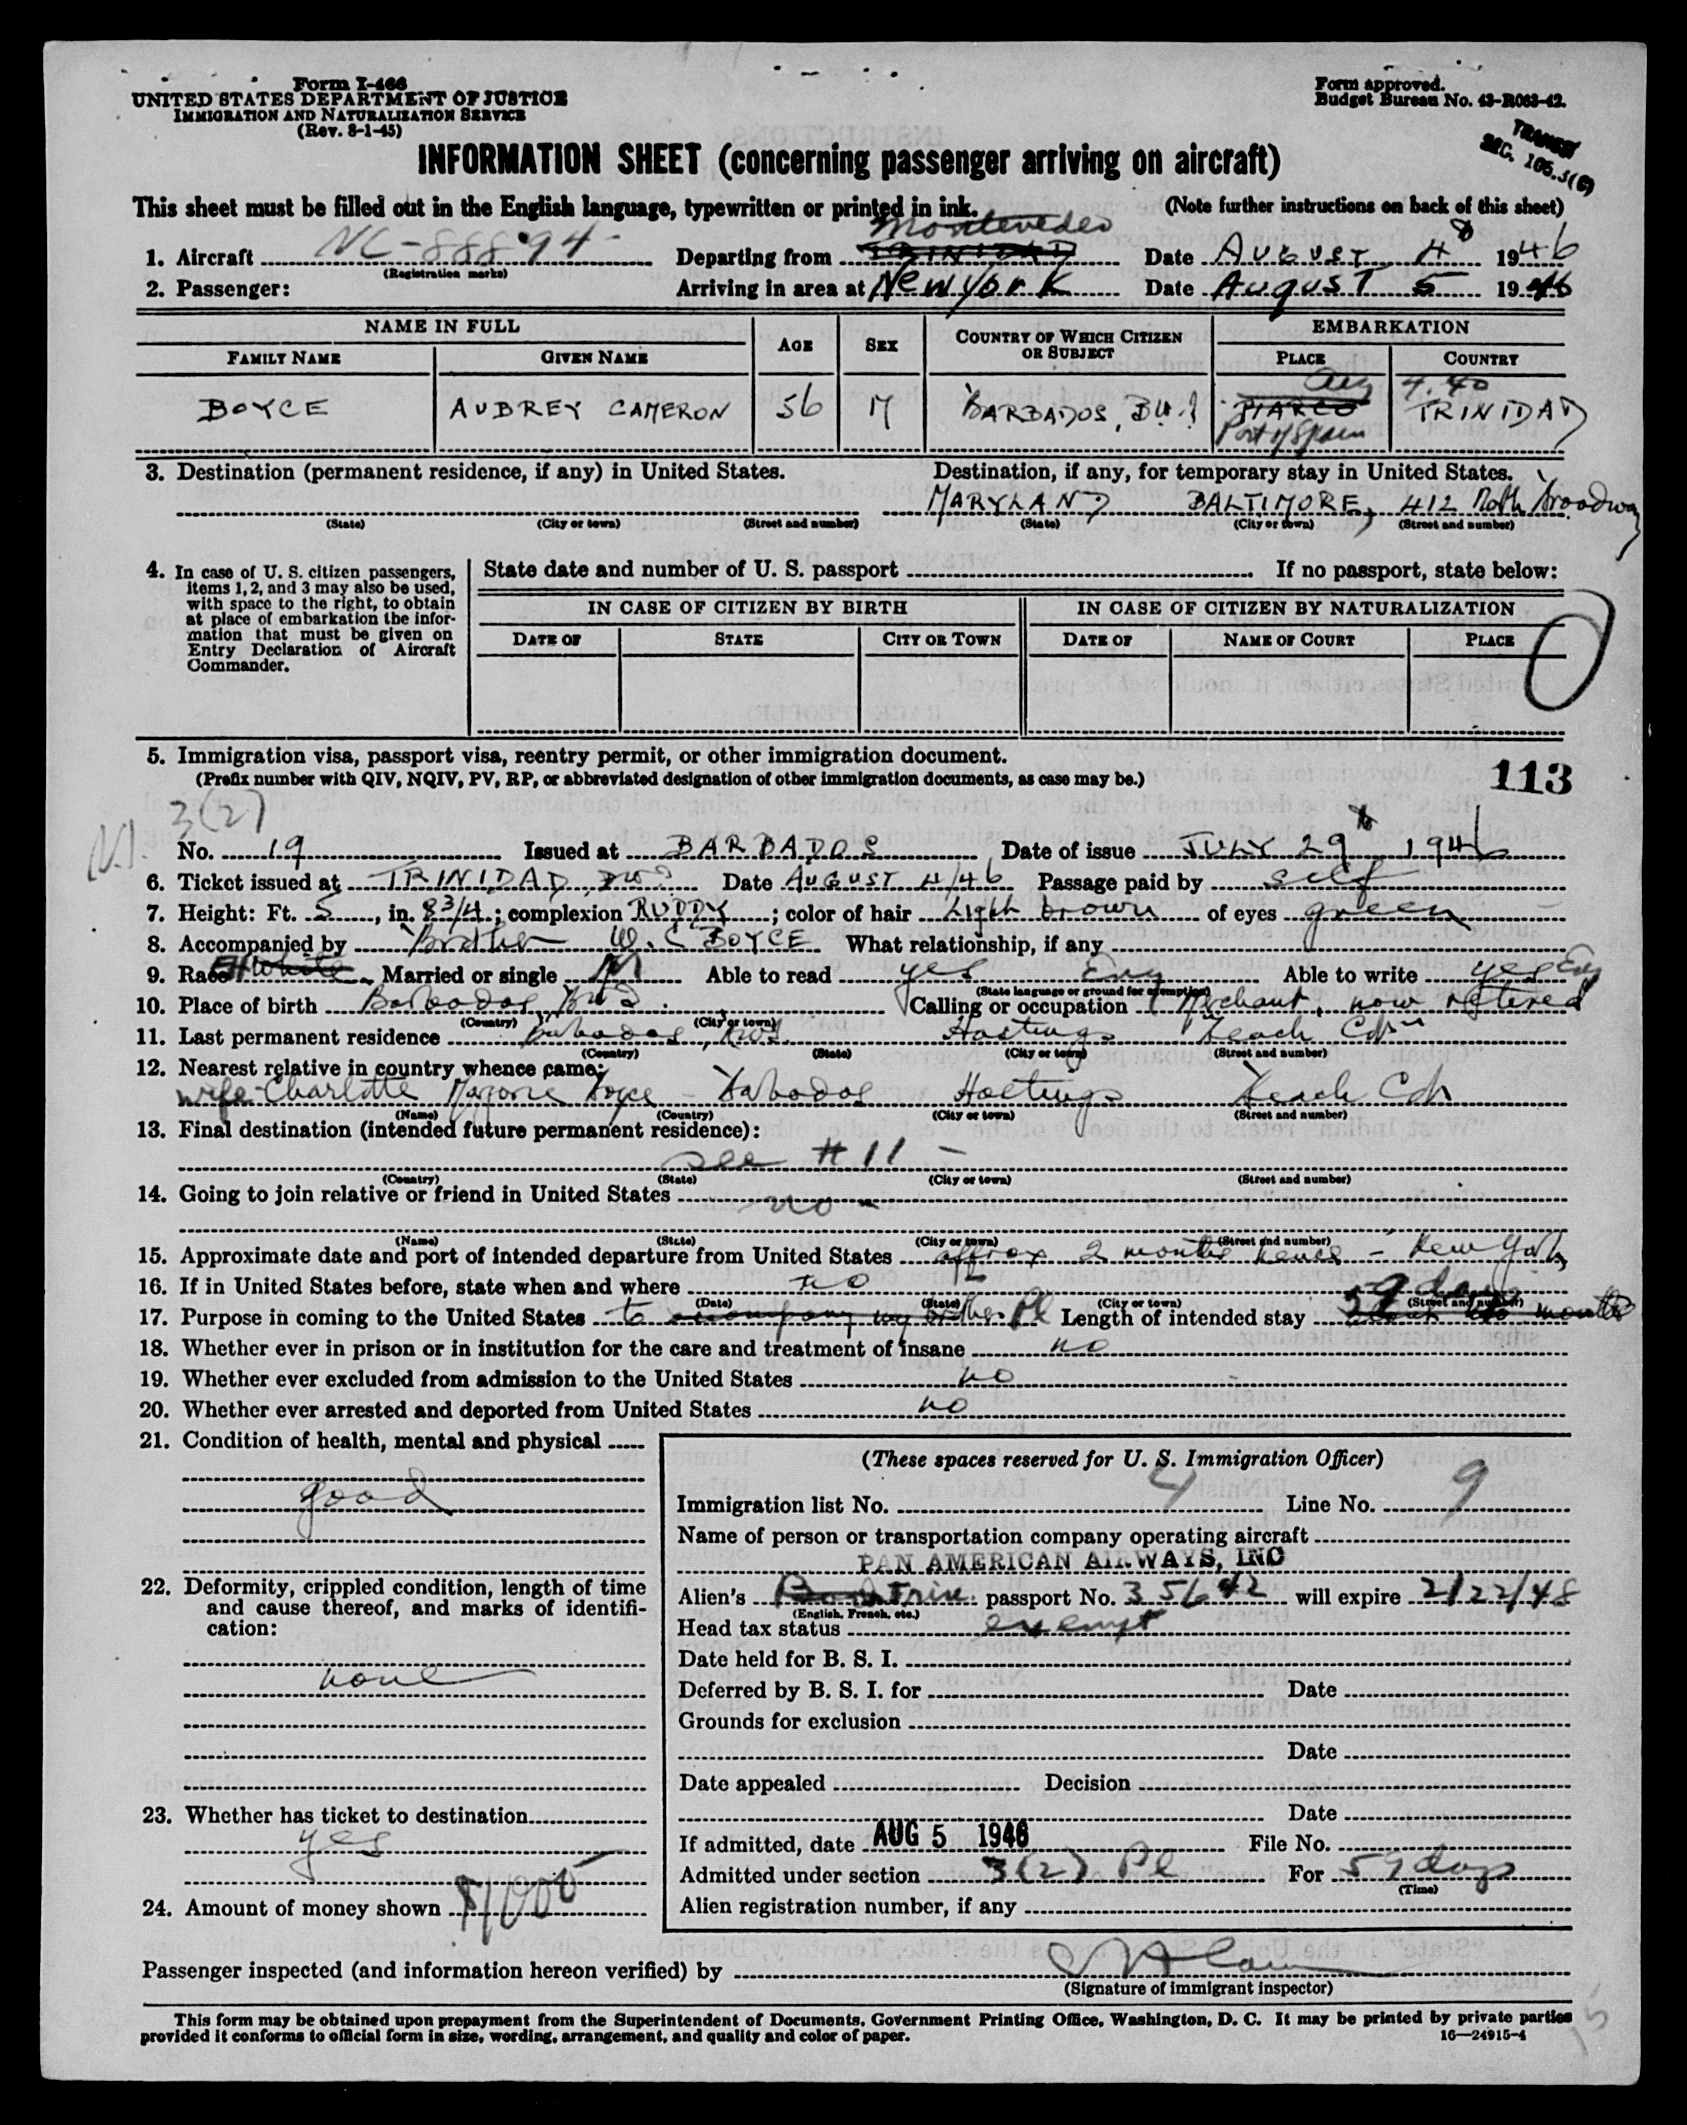 Form I-466
UNITED STATES DEPARTMENT OF JUSTICE
IMMIGRATION AND NATURALIZATION SERVICE
(Rev. 8-1-45)
Form approved.
Budget Bureau No. 43-R063-42.
TRANSIT
SEC. 105.3(6)
INFORMATION SHEET (concerning passenger arriving on aircraft)
This sheet must be filled out in the English language, typewritten or printed in ink. (Note further instructions on back of this sheet)
Montevedeo
1. Aircraft NC-88894 Departing from TRINIDAD Date AUGUST 4 1946
(Registration marks)
2. Passenger: Arriving in area at New York Date August 5 1946
NAME IN FULL AGE SEX COUNTRY OF WHICH CITIZEN OR SUBJECT EMBARKATION
FAMILY NAME GIVEN NAME PLACE COUNTRY
Aug 4.46
BOYCE AUBREY CAMERON 56 M BARBADOS, B.W.I PIARCO TRINIDAD
Port of Spain
3. Destination (permanent residence, if any) in United States. Destination, if any, for temporary stay in United States.
MARYLAND BALTIMORE, 412 North Broadway
(State) (City or town) (Street and number) (State) (City or town) (Street and number)
4. In case of U. S. citizen passengers, items 1, 2, and 3 may also be used, with space to the right, to obtain at place of embarkation the information that must be given on Entry Declaration of Aircraft Commander.
State date and number of U. S. passport If no passport, state below:
IN CASE OF CITIZEN BY BIRTH IN CASE OF CITIZEN BY NATURALIZATION
DATE OF STATE CITY OR TOWN DATE OF NAME OF COURT PLACE
5. Immigration visa, passport visa, reentry permit, or other immigration document.
(Prefix number with QIV, NQIV, PV, RP, or abbreviated designation of other immigration documents, as case may be.)
113
3(2)
No. 19 Issued at BARBADOS Date of issue JULY 29th 1946
6. Ticket issued at TRINIDAD, BWI Date AUGUST 4/46 Passage paid by self
7. Height: Ft. 5, in. 8 3/4; complexion RUDDY; color of hair Light brown of eyes green
8. Accompanied by Brother W. C BOYCE What relationship, if any
9. Race White Married or single M Able to read yes Eng Able to write yes Eng
(State language or ground for exemption)
10. Place of birth Barbados, BWI Calling or occupation Merchant, now retired
(Country) (City or town)
11. Last permanent residence Barbados, BWI. Hastings Beach Cot
(Country) (State) (City or town) (Street and number)
12. Nearest relative in country whence came:
wife Charlotte Marjorie Boyce - Barbados Hastings Beach Cot
(Name) (Country) (City or town) (Street and number)
13. Final destination (intended future permanent residence):
see #11 -
(Country) (State) (City or town) (Street and number)
14. Going to join relative or friend in United States no -
(Name) (State) (City or town) (Street and number)
15. Approximate date and port of intended departure from United States approx 2 months hence - New York
16. If in United States before, state when and where no
(Date) (State) (City or town) (Street and number)
59 days
17. Purpose in coming to the United States to accompany my brother Pl Length of intended stay about two months
18. Whether ever in prison or in institution for the care and treatment of insane no
19. Whether ever excluded from admission to the United States no
20. Whether ever arrested and deported from United States no
21. Condition of health, mental and physical
good
22. Deformity, crippled condition, length of time and cause thereof, and marks of identification:
none
23. Whether has ticket to destination
yes
24. Amount of money shown $1000
(These spaces reserved for U. S. Immigration Officer)
Immigration list No. 4 Line No. 9
Name of person or transportation company operating aircraft
PAN AMERICAN AIRWAYS, INC
Alien's Trin. passport No. 35642 will expire 2/22/48
(English, French, etc.)
Head tax status exempt
Date held for B. S. I.
Deferred by B. S. I. for Date
Grounds for exclusion
Date
Date appealed Decision
Date
If admitted, date AUG 5 1946 File No.
Admitted under section 3(2) Pl For 59 days
(Time)
Alien registration number, if any
Passenger inspected (and information hereon verified) by
(Signature of immigrant inspector)
This form may be obtained upon prepayment from the Superintendent of Documents, Government Printing Office, Washington, D. C. It may be printed by private parties
provided it conforms to official form in size, wording, arrangement, and quality and color of paper. 16—24915-4